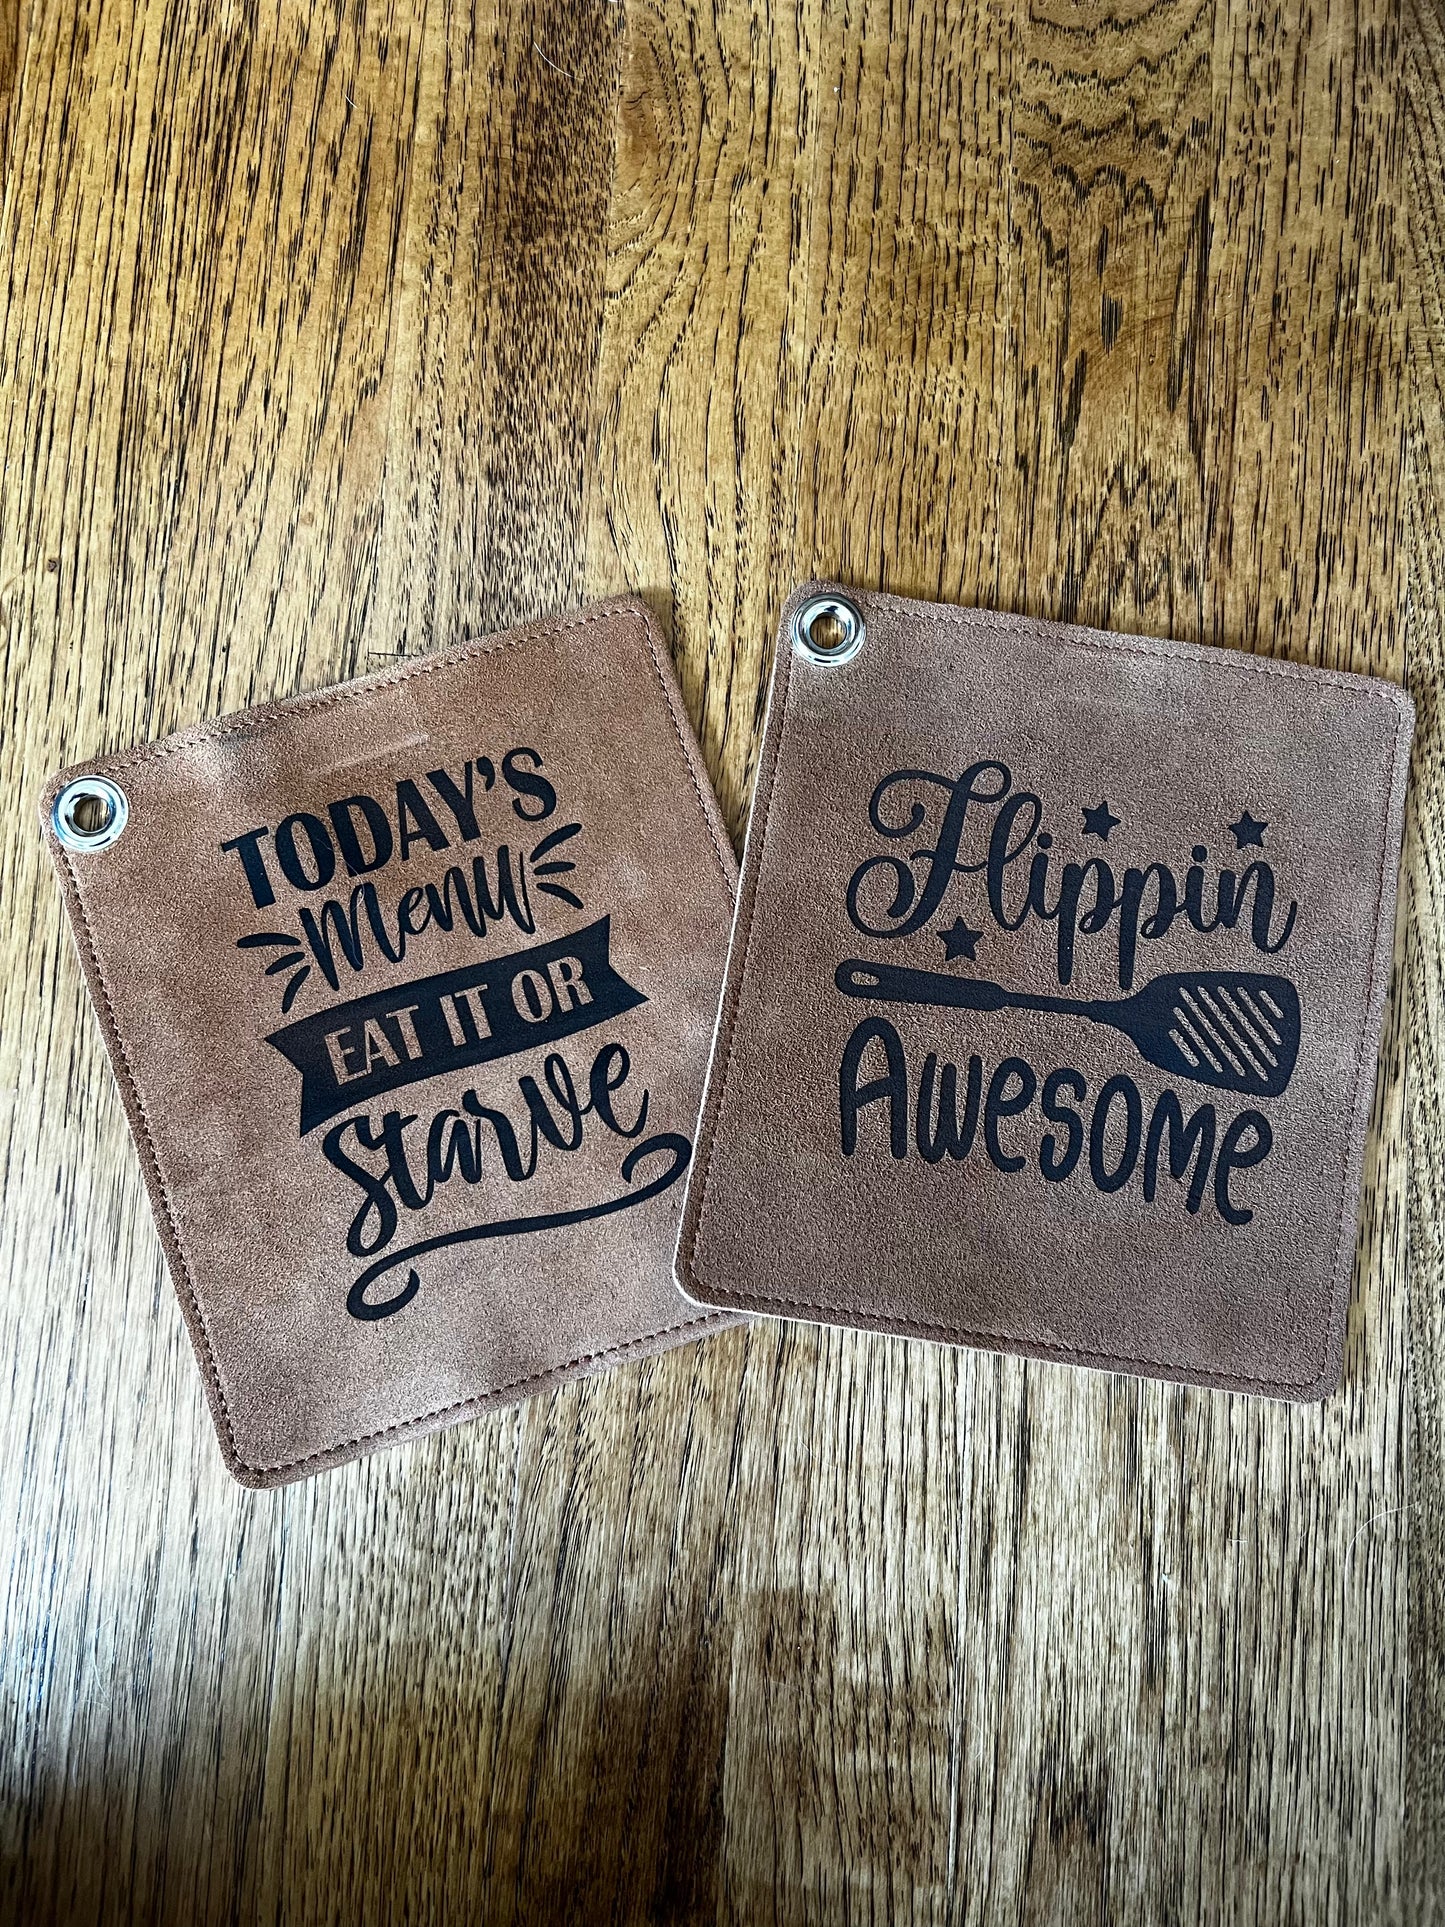 TODAY'S
Menu
EAT IT OR
Starve
Flippin
Awesome